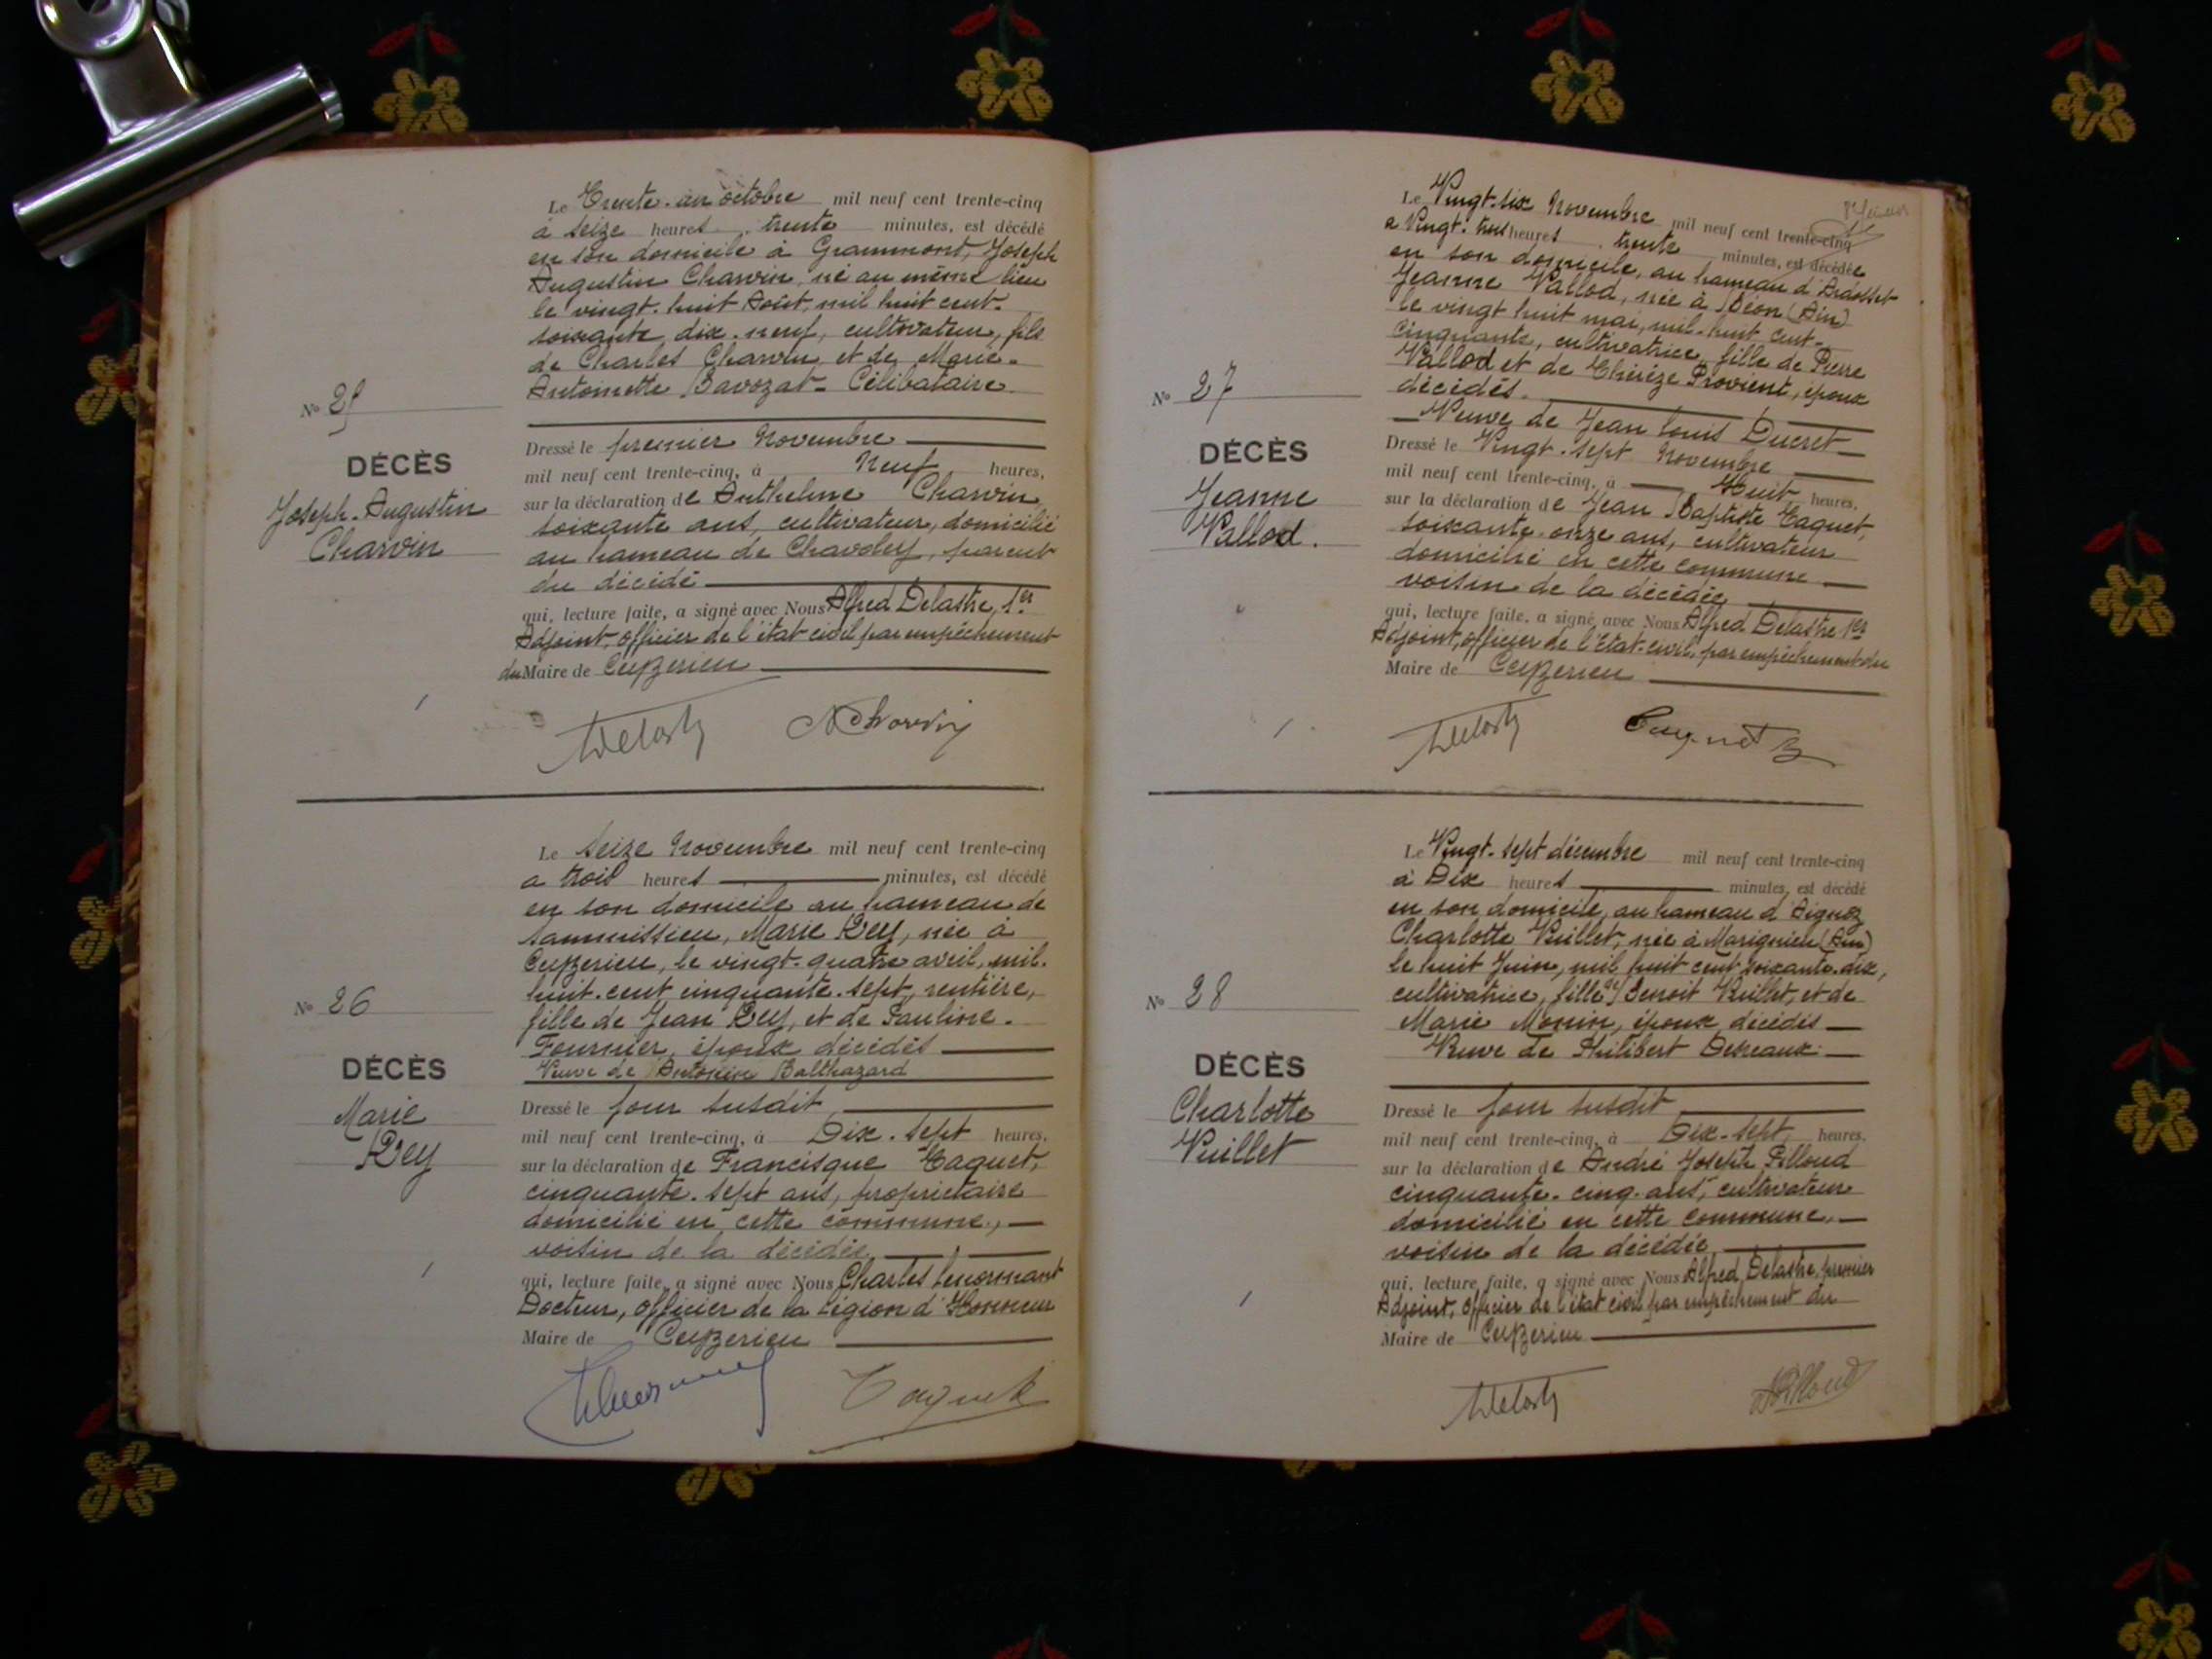 Le Trente-un octobre mil neuf cent trente-cinq
à seize heures trente minutes, est décédé
en son domicile à Grammont, Joseph
Augustin Charvin, né au même lieu
le vingt-huit Août, mil huit cent-
soixante dix-neuf, cultivateur, fils
de Charles Charvin et de Marie-
Antoinette Bavozat- Célibataire
No 25
DÉCÈS
Joseph-Augustin
Charvin
Dressé le premier Novembre
mil neuf cent trente-cinq, à Neuf heures,
sur la déclaration de Anthelme Charvin
soixante ans, cultivateur, domicilié
au hameau de Chavoley, parent
du décédé
qui, lecture faite, a signé avec Nous Alfred Delastre, 1er
Adjoint, officier de l'état civil par empêchement
du Maire de Ceyzerieu
Charvin
Le seize Novembre mil neuf cent trente-cinq
a trois heures minutes, est décédé
en son domicile au hameau de
Sammissieu, Marie Rey, née à
Ceyzerieu, le vingt-quatre avril, mil-
huit-cent cinquante-sept, rentière,
fille de Jean Rey, et de Pauline-
Fournier, époux décédés
Veuve de Antonin Balthazard
No 26
DÉCÈS
Marie
Rey
Dressé le jour susdit
mil neuf cent trente-cinq, à Dix-sept heures,
sur la déclaration de Francisque Taquet,
cinquante-sept ans, propriétaire
domicilié en cette commune,
voisin de la décédée
qui, lecture faite, a signé avec Nous Charles Lenormant
Docteur, officier de la Légion d'Honneur
Maire de Ceyzerieu
Taquet
Le Vingt-six Novembre mil neuf cent trente-cinq
a Vingt-trois heures trente minutes, est décédée
en son domicile, au hameau d'Ardosset
Jeanne Vallod, née à Béon (Ain)
le vingt huit mai, mil-huit cent-
cinquante, cultivatrice, fille de Pierre
Vallod et de Thérèze Provient, époux
décédés
Veuve de Jean Louis Ducret
No 27
DÉCÈS
Jeanne
Vallod.
Dressé le Vingt-sept Novembre
mil neuf cent trente-cinq, à Huit heures,
sur la déclaration de Jean Baptiste Taquet,
soixante-onze ans, cultivateur
domicilié en cette commune
voisin de la décédée
qui, lecture faite, a signé avec Nous Alfred Delastre 1er
Adjoint, officier de l'Etat-civil, par empêchement du
Maire de Ceyzerieu
Le Vingt-sept décembre mil neuf cent trente-cinq
à Dix heures minutes, est décédé
en son domicile, au hameau d'Aignoz
Charlotte Vuillet, née à Marignieu (Ain)
le huit Juin, mil huit cent soixante-dix,
cultivatrice, fille de Benoit Vuillet, et de
Marie Monin, époux décédés
Veuve de Philibert Desseaux
No 28
DÉCÈS
Charlotte
Vuillet
Dressé le jour susdit
mil neuf cent trente-cinq, à Dix-sept heures,
sur la déclaration de André Joseph Pilloud
cinquante-cinq ans, cultivateur
domicilié en cette commune,
voisin de la décédée
qui, lecture faite, a signé avec Nous Alfred Delastre, premier
Adjoint, officier de l'état civil par empêchement du
Maire de Ceyzerieu
Pilloud